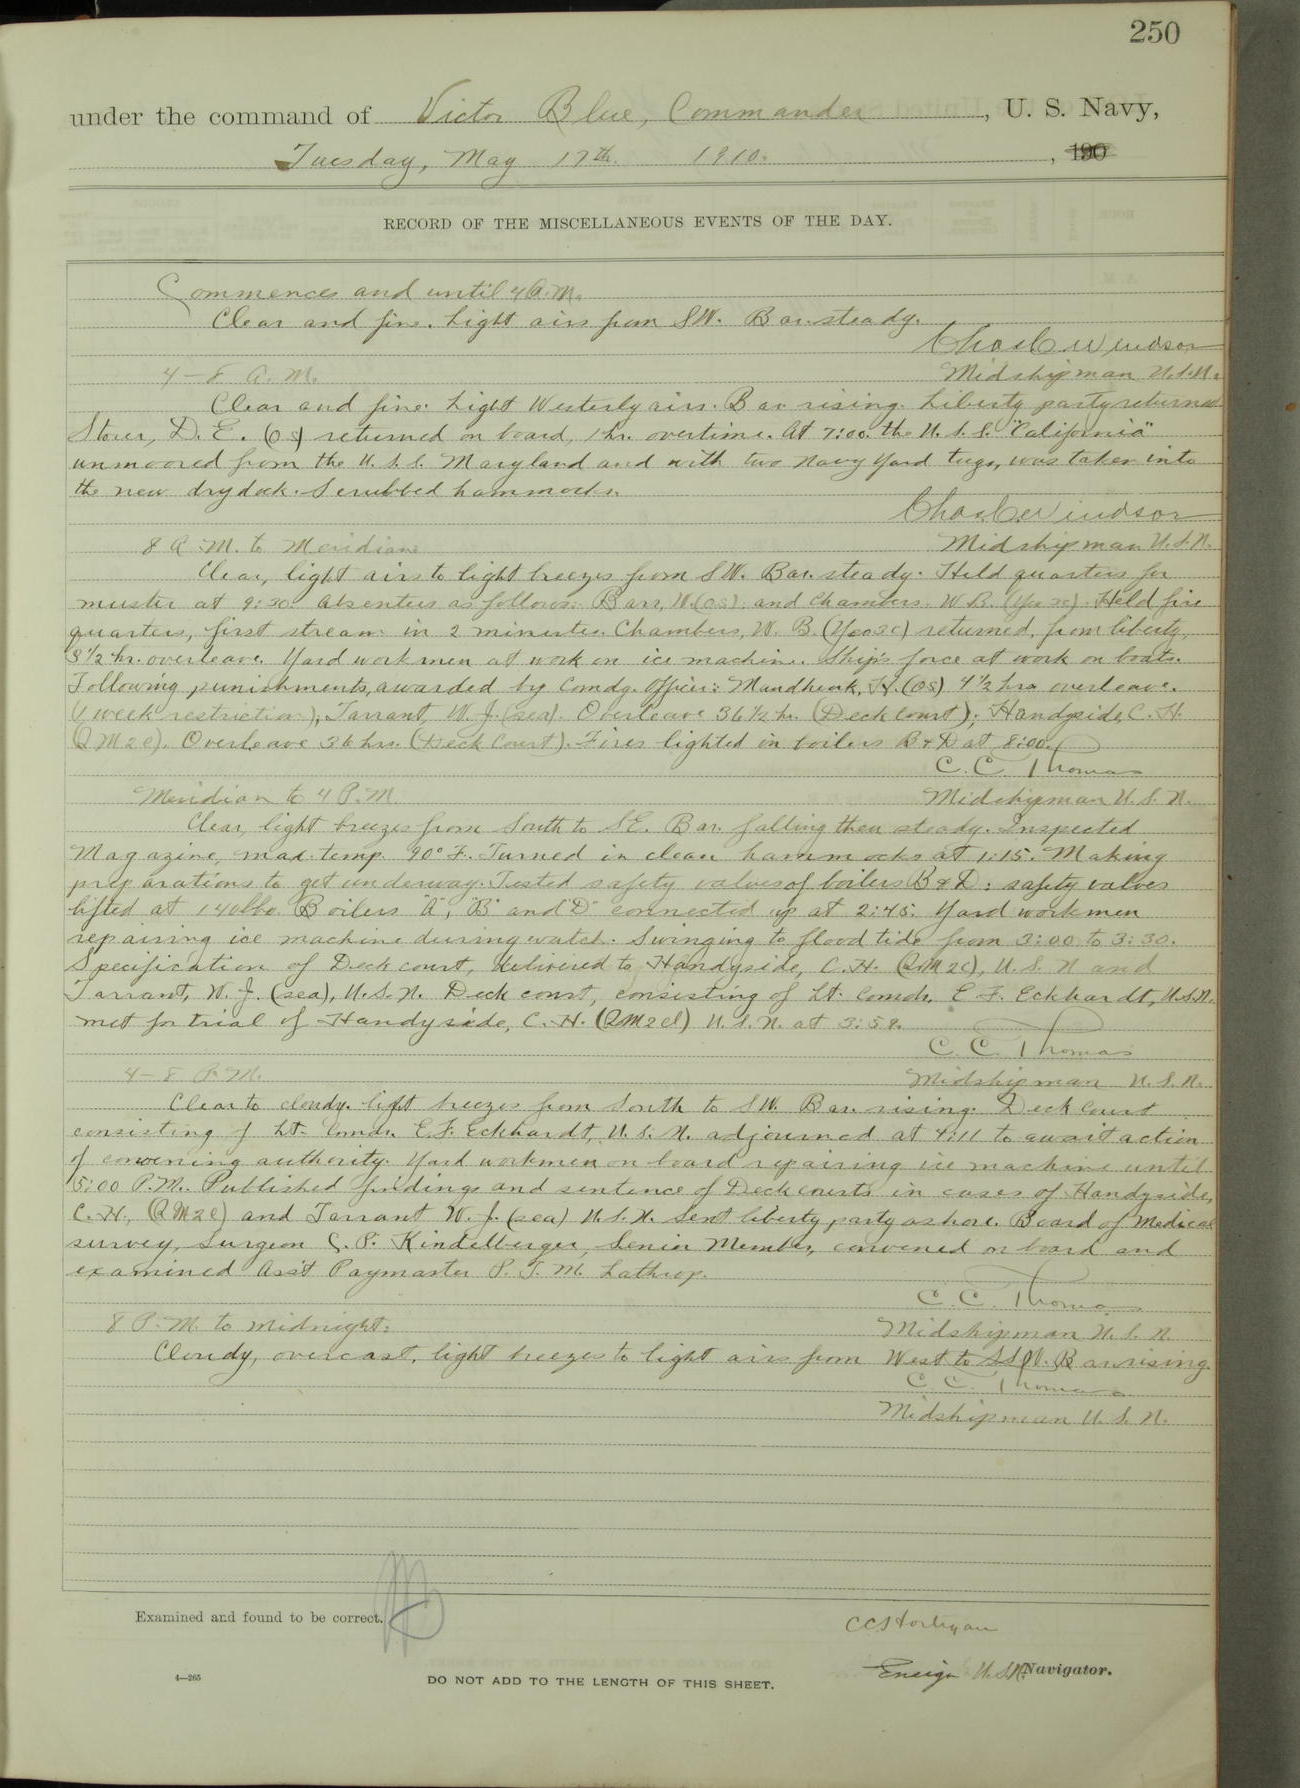 250
under the command of Victor Blue, Commander, U. S. Navy,
Tuesday, May 17th. 1910. , 190
RECORD OF THE MISCELLANEOUS EVENTS OF THE DAY.
Commences and until 4 A.M.
Clear and fine. Light airs from SW. Bar. steady.
Chas C Windsor
4-8 A.M.
Midshipman U.S.N.
Clear and fine. Light Westerly airs. Bar rising. Liberty party returned
Storer, D. E. (OS) returned on board, 1 hr. overtime. At 7:00. the U.S.S. "California"
unmoored from the U.S.S. Maryland and with two Navy Yard tugs, was taken into
the new dry dock. Scrubbed hammocks.
Chas C Windsor
8 A.M. to Meridian
Midshipman U.S.N.
Clear, light airs to light breezes from SW. Bar. steady. Held quarters for
muster at 9:30. Absentees as follows: Barr, W. (OS) and Chambers W.B. (Yeo 3c). Held fire
quarters, first stream in 2 minutes. Chambers, W. B. (Yeo 3c) returned, from liberty,
3 1/2 hr. overleave. Yard workmen at work on ice machine. Ship's force at work on boats.
Following punishments, awarded by Comdg. Officer: Mandhenk, H. (OS) 4 1/2 hrs overleave.
(1 week restriction), Tarrant, W. J. (sea). Overleave 36 1/2 hr. (Deck Court); Handyside, C. H.
(QM2c). Overleave 36 hrs. (Deck Court). Fires lighted in boilers B & D at 8:00.
C. C. Thomas
Meridian to 4 P.M.
Midshipman U. S. N.
Clear, light breezes from South to SE. Bar. falling then steady. Inspected
Magazine, max. temp. 90° F. Turned in clean hammocks at 1:15. Making
preparations to get underway. Tested safety valves of boilers B & D: safety valves
lifted at 140 lbs. Boilers "A", "B" and "D" connected up at 2:45. Yard workmen
repairing ice machine during watch. Swinging to flood tide from 3:00 to 3:30.
Specification of Deck court, delivered to Handyside, C. H. (QM2c), U. S. N and
Tarrant, W. J. (sea), U.S.N. Deck court, consisting of Lt. Comdr. E. F. Eckhardt, U.S.N.
met for trial of Handyside, C. H. (QM2cl) U. S. N. at 3:58.
C. C. Thomas
4-8 P.M.
Midshipman U. S. N.
Clear to cloudy. light breezes from South to SW. Bar. rising. Deck Court
consisting of Lt. Comdr. E. F. Eckhardt, U. S. N. adjourned at 4:11 to await action
of convening authority. Yard workmen on board repairing ice machine until
5:00 P.M. Published findings and sentence of Deck courts in cases of Handyside,
C. H., (QM2c) and Tarrant W. J. (sea) U.S.N. Sent liberty party ashore. Board of Medical
survey, Surgeon C. P. Kindelberger, Senior Member, convened on board and
examined Ass't Paymaster P. T. M. Lathrop.
C. C. Thomas
8 P.M. to midnight:
Midshipman U. S. N.
Cloudy, overcast, light breezes to light airs from West to SSW. Bar rising.
C. C. Thomas
Midshipman U. S. N.
Examined and found to be correct.
C C S Hortigan
Ensign U.S.N. Navigator.
4—265
DO NOT ADD TO THE LENGTH OF THIS SHEET.